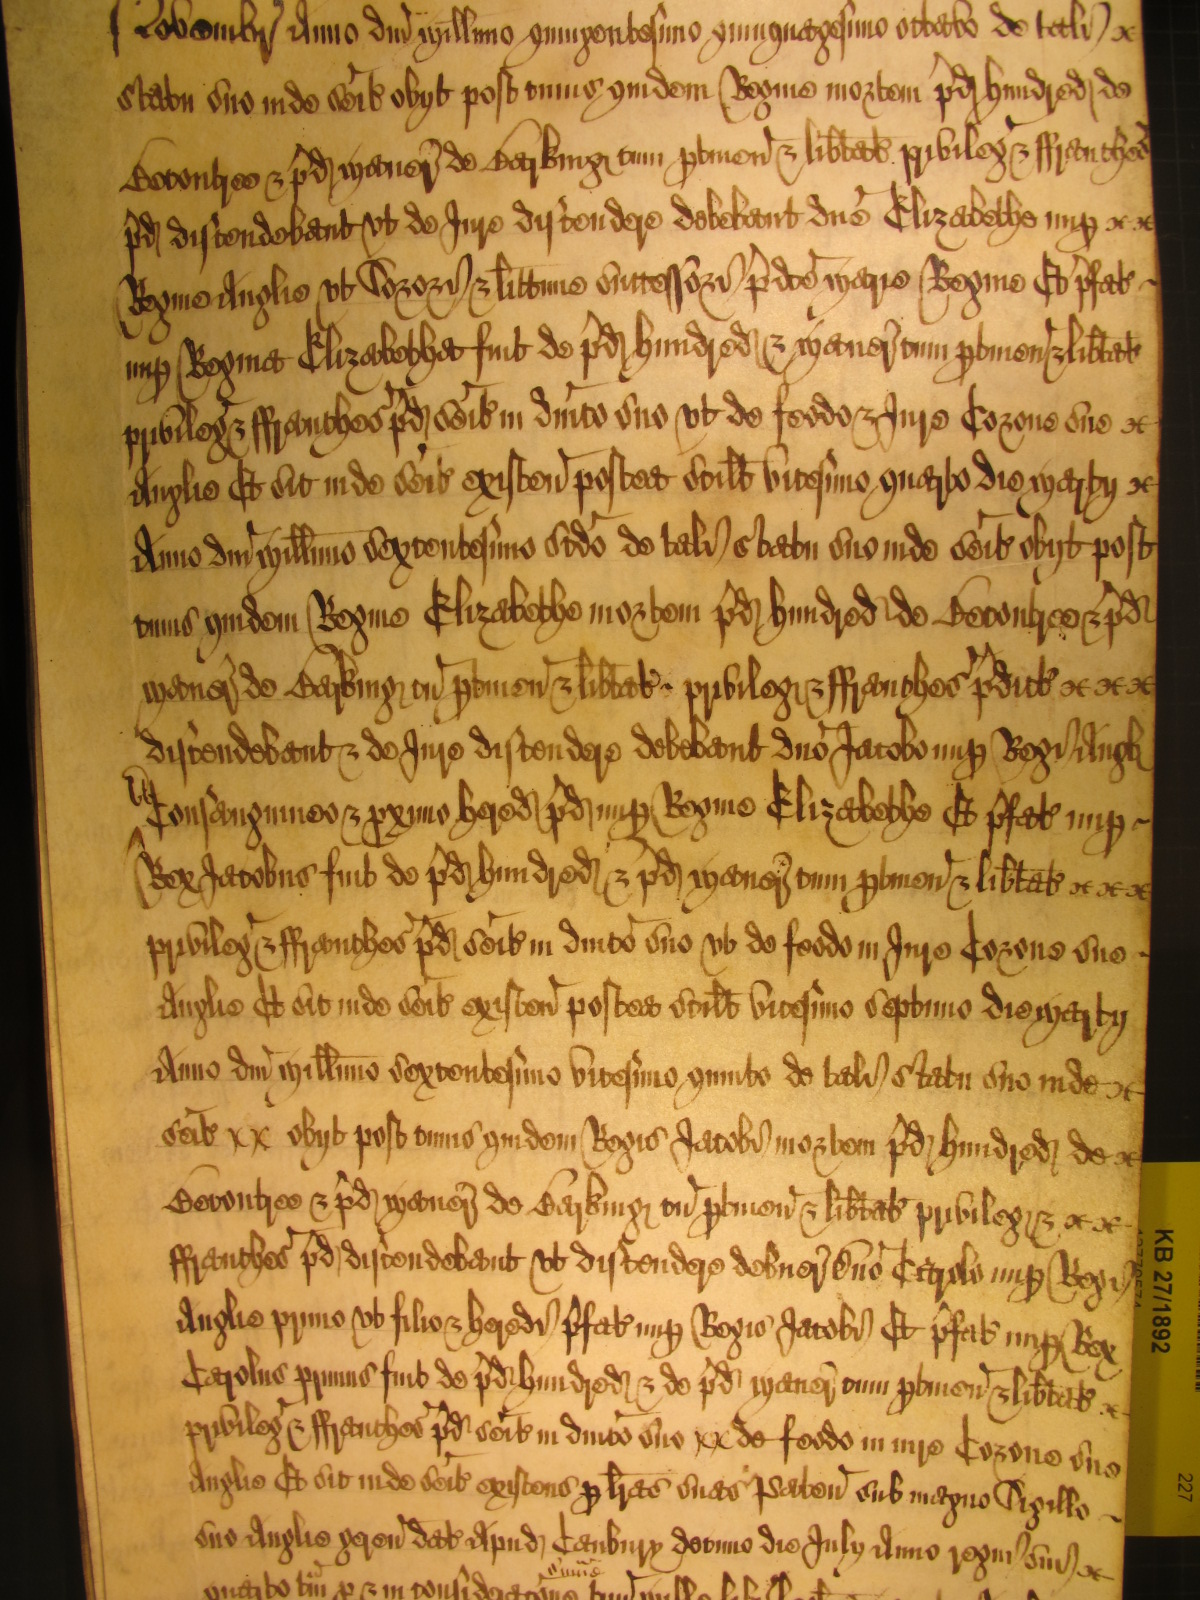 Novembris Anno dni Millimo quingentesimo quinquagesimo octavo de tali
statu suo inde seit obijt post cuius quidem Regine mortem pd hundred de
Becontree & pd Maner de Barking cum ptinen & libtat privileg & ffranches
pd discendebant ut de Jure discendere debebant dne Elizabethe nup
Regine Anglie ut Sorori & littime successori pdce Marie Regine Et pfat
nup Regina Elizabetha fuit de pd hundred & Maner cum ptinen & libtat
privileg & ffranches pd seit in dnico suo ut de feodo & Jure Corone sue
Anglie Et sic inde seit existen postea scilt vicesimo quarto die Martij
Anno dni Millimo sexcentesimo scdo de tali statu suo inde seit obijt post
cuius quidem Regine Elizabethe mortem pd hundred de Becontree & pd
Maner de Barking cu ptinen & libtat privileg & ffranches pdict
discendebant & de Jure discendere debebant dno Jacobo nup Regi Angl
ut Consanguineo & pximo hered pd nup Regine Elizabethe Et pfat nup
Rex Jacobus fuit de pd hundred & pd Maner cum ptinen & libtat
privileg & ffranches pd seit in dnico suo ut de feodo in Jure Corone sue
Anglie Et sic inde seit existen postea scilt vicesimo septimo die Martij
Anno dni Millimo sexcentesimo vicesimo quinto de tali statu suo inde
seit xx obijt post cuius quidem Regis Jacobi mortem pd hundred de
Becontree & pd Maner de Barking cu ptinen & libtat privileg &
ffranches pd discendebant ut discendere debuer dno Carolo nup Regi
Anglie primo ut filio & heredi pfat nup Regis Jacobi Et pfat nup Rex
Carolus primus fuit de pd hundred & de pd Maner cum ptinen & libtat
privileg & ffranches pd seit in dnico suo xx de feodo in iure Corone sue
Anglie Et sic inde seit existens p lras suas Paten sub magno Sigillo
suo Anglie geren dat Apud Canbury decimo die July Anno regni sui
quarto tam p & in consideracone